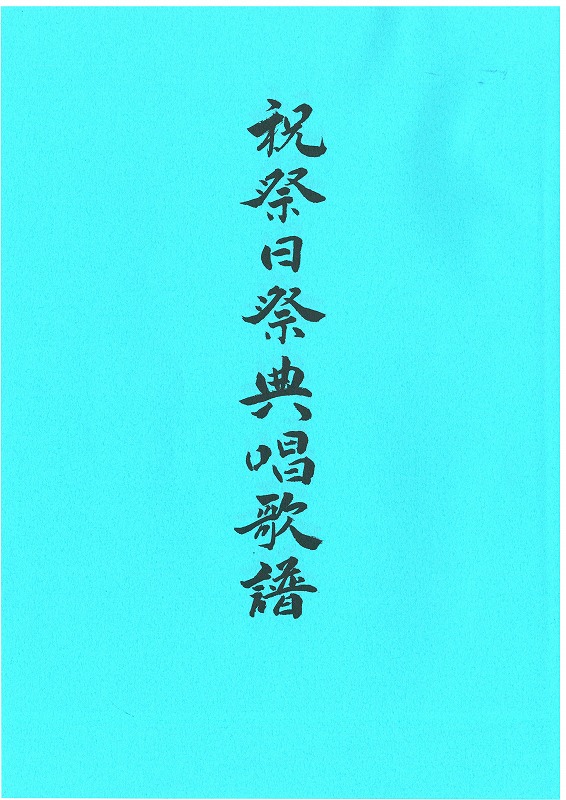 祝祭日祭典唱歌譜